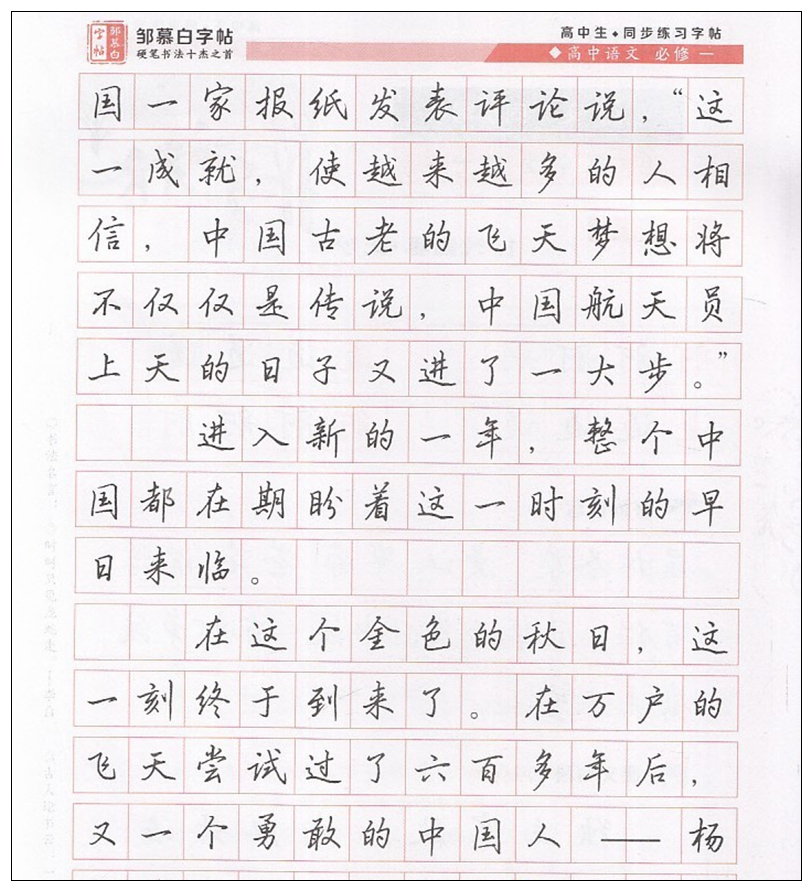 邹慕白字帖
硬笔书法十杰之首
高中生◆同步练习字帖
◆高中语文 必修一
国一家报纸发表评论说，“这
一成就，使越来越多的人相
信，中国古老的飞天梦想将
不仅仅是传说，中国航天员
上天的日子又进了一大步。”
进入新的一年，整个中
国都在期盼着这一时刻的早
日来临。
在这个金色的秋日，这
一刻终于到来了。在万户的
飞天尝试过了六百多年后，
又一个勇敢的中国人——杨